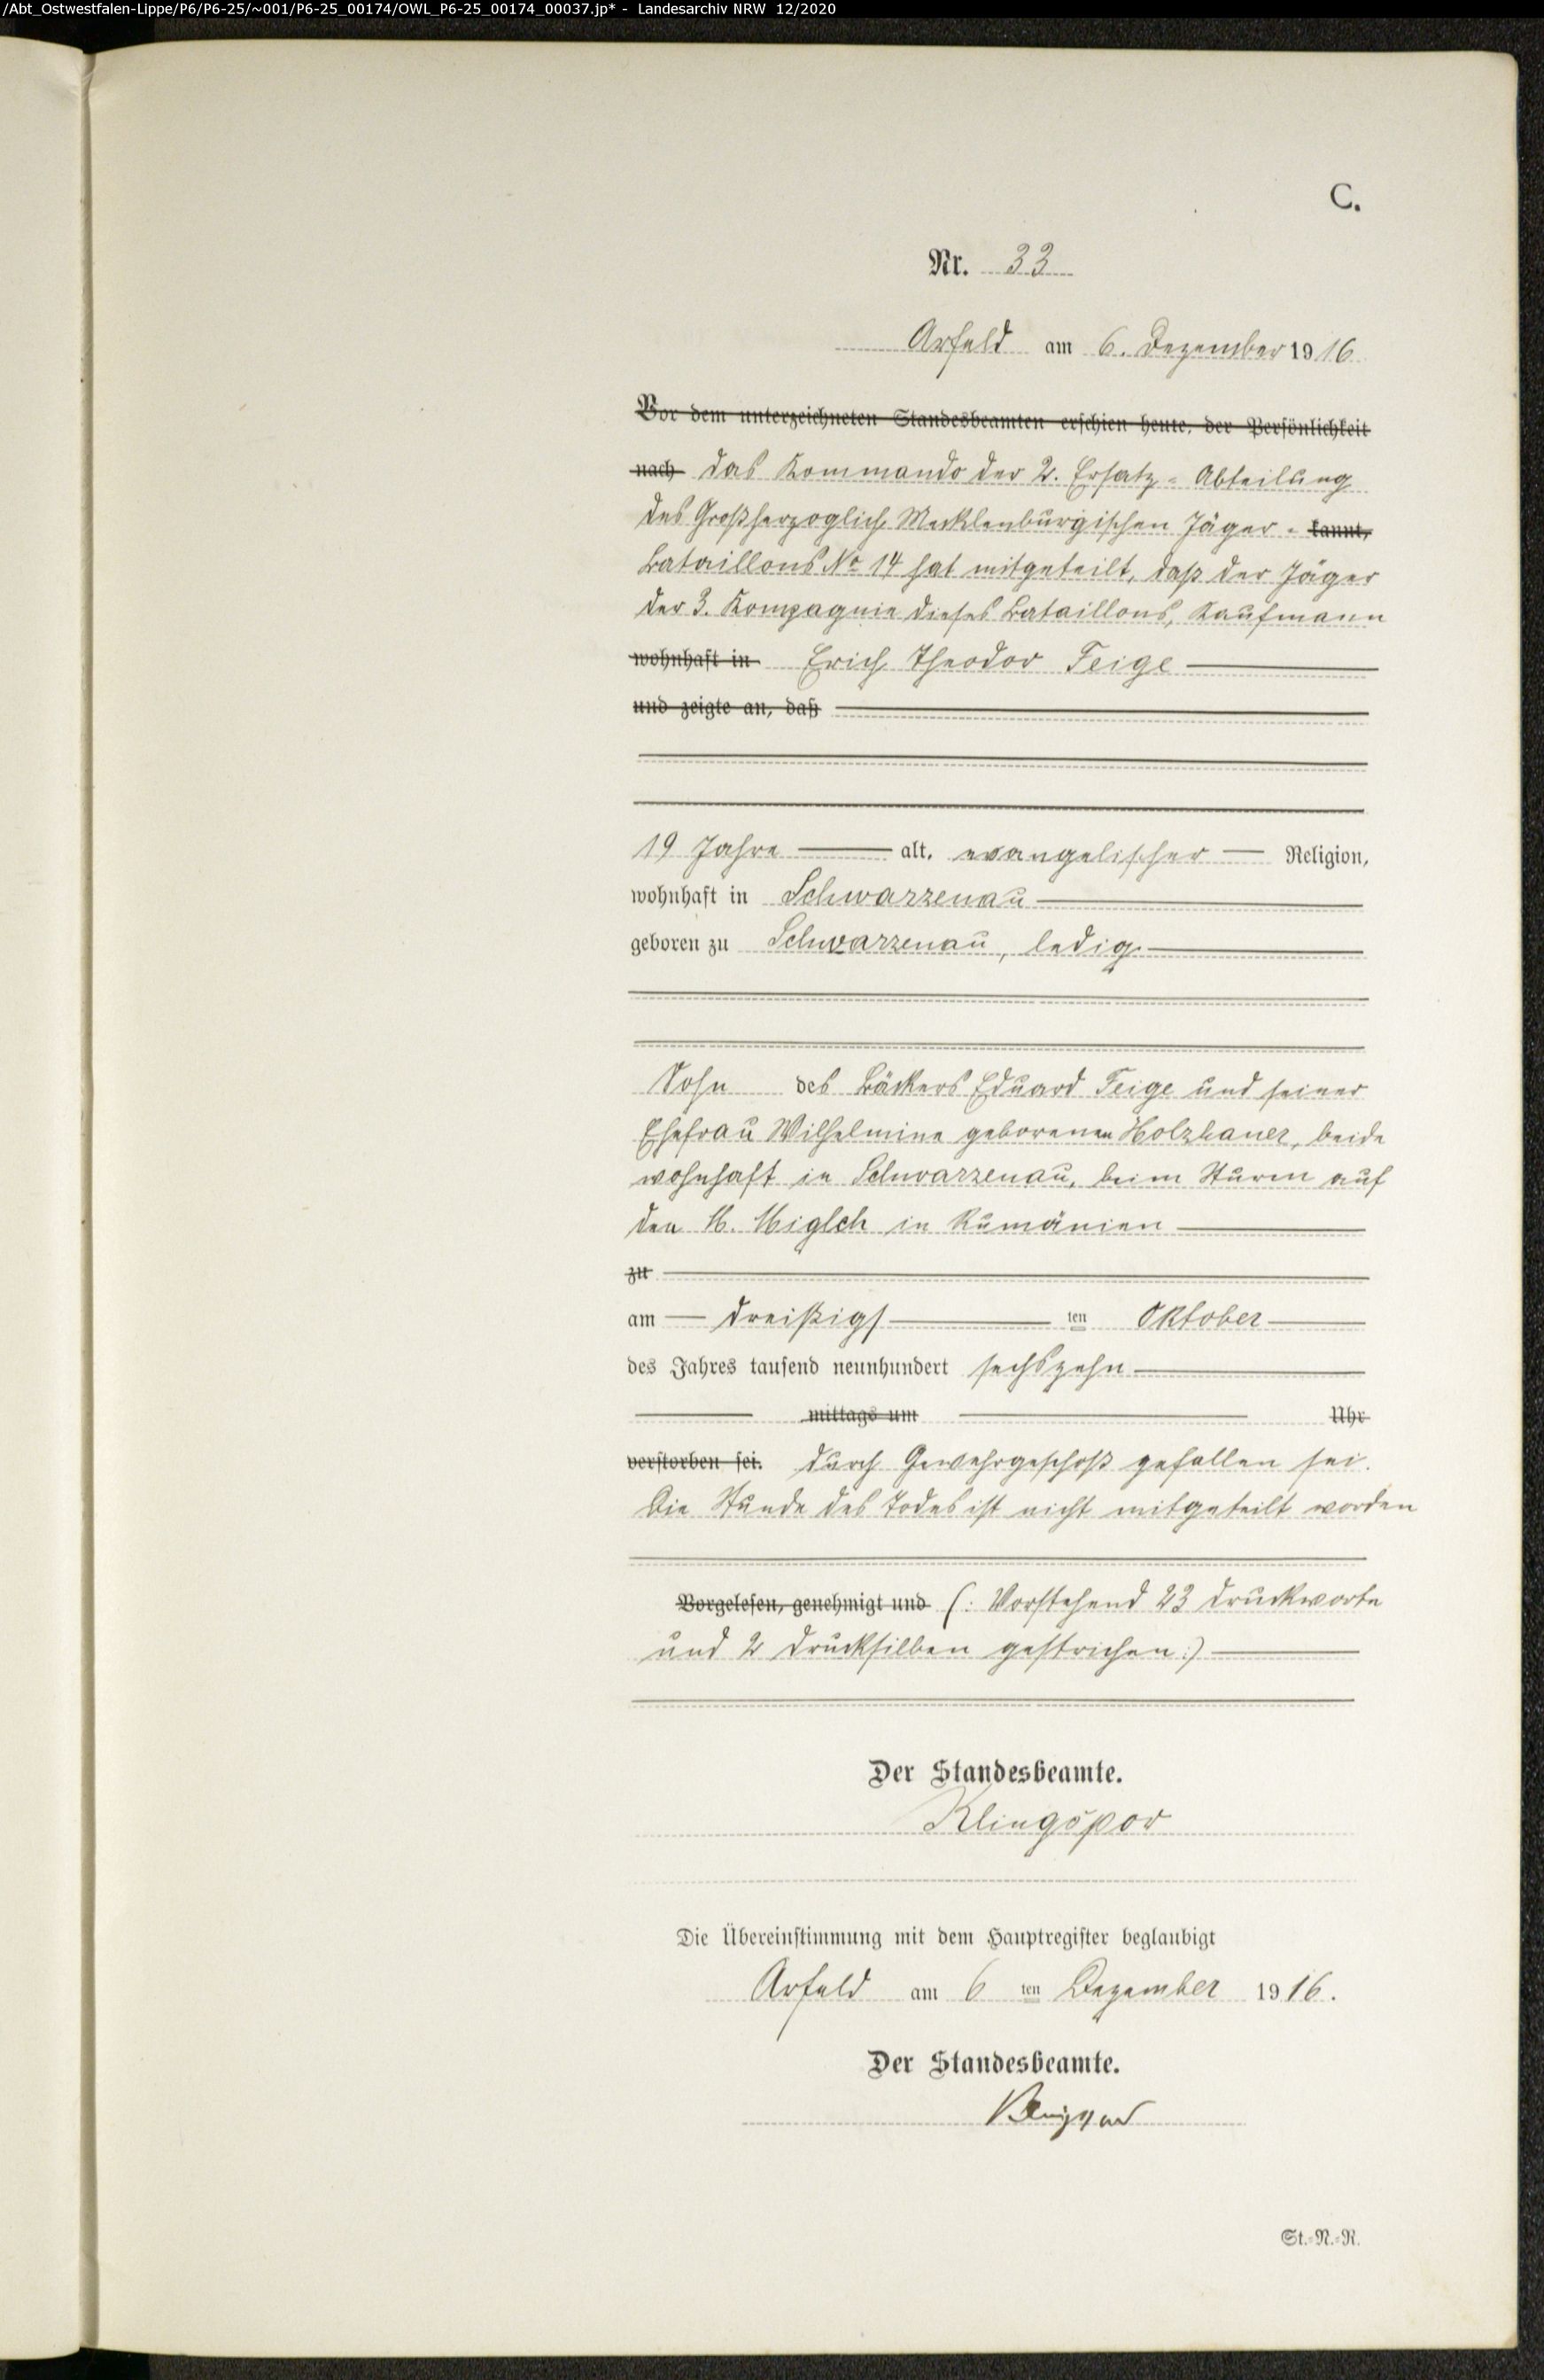 /Abt_Ostwestfalen-Lippe/P6/P6-25/~001/P6-25_00174/OWL_P6-25_00174_00037.jp* - Landesarchiv NRW 12/2020
C.
Nr. 33
Arfeld am 6. Dezember 1916
Vor dem unterzeichneten Standesbeamten erschien heute, der Persönlichkeit
nach das Kommando der 2. Ersatz-Abteilung
des Großherzoglich Mecklenburgischen Jäger- kannt,
Bataillons No 14 hat mitgeteilt, daß der Jäger
der 3. Kompagnie dieses Bataillons, Kaufmann
wohnhaft in Erich Theodor Feige
und zeigte an, daß
19 Jahre alt, evangelischer Religion,
wohnhaft in Schwarzenau
geboren zu Schwarzenau, ledig.
Sohn des Bäckers Eduard Feige und seiner
Ehefrau Wilhelmine geborenen Holzhauer, beide
wohnhaft in Schwarzenau, beim Sturm auf
den in Rumänien
zu
am dreißigs ten Oktober
des Jahres tausend neunhundert sechszehn
mittags um Uhr
verstorben sei. durch Gewehrgeschoß gefallen sei.
Die Stunde des Todes ist nicht mitgeteilt worden
Vorgelesen, genehmigt und (: Vorstehend 23 Druckworte
und 2 Drucksilben gestrichen :)
Der Standesbeamte.
Klingspor
Die Übereinstimmung mit dem Hauptregister beglaubigt
Arfeld am 6 ten Dezember 1916.
Der Standesbeamte.
Klingspor
St.-N.-R.